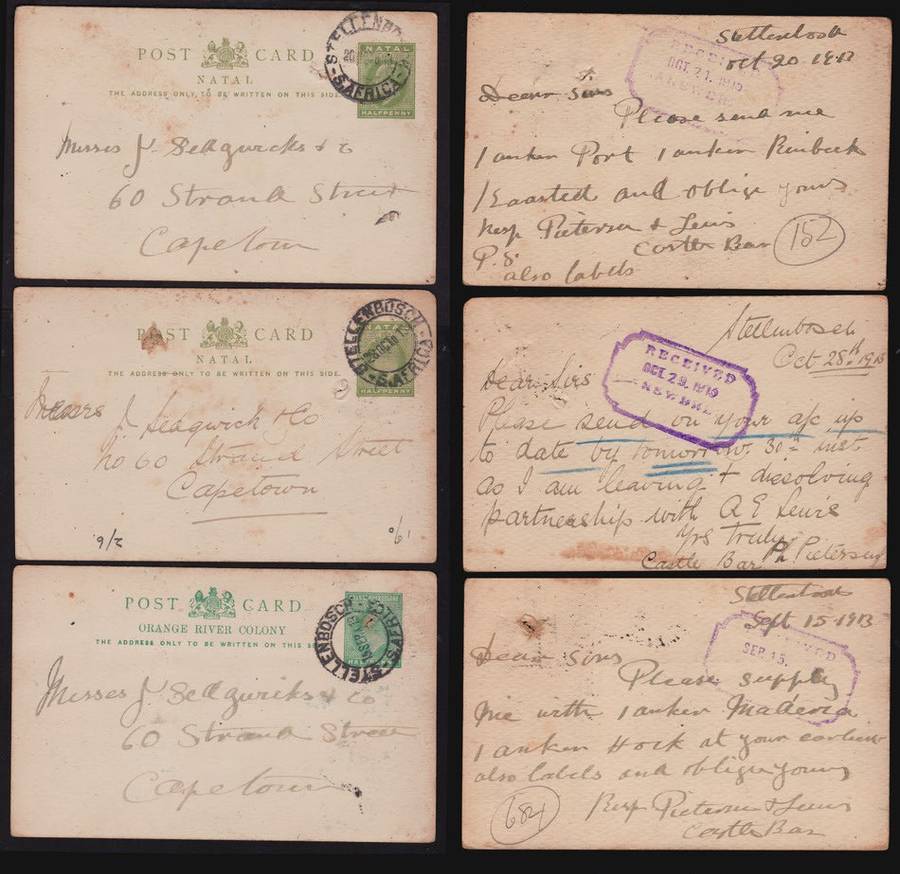 POST CARD
NATAL
THE ADDRESS ONLY TO BE WRITTEN ON THIS SIDE
NATAL
HALFPENNY
STELLENBO
S.AFRICA
Messes J. Sedgwicks & Co
60 Strand Street
Capetown
Stellenbosch
Oct 20 1913
RECEIVED
OCT 21 1913
Dear Sirs
Please send me
1 anken Port 1 anken
and oblige yours
Resp Pietersen & Lewis
Castle Bar
P.S.
also labels
152
POST CARD
NATAL
THE ADDRESS ONLY TO BE WRITTEN ON THIS SIDE
NATAL
HALFPENNY
STELLENBOSCH
S.AFRICA
Messrs J. Sedgwick & Co
No 60 Strand Street
Capetown
2/6
Stellenbosch
Oct 28th 1913
RECEIVED
OCT 29 1913
Dear Sirs
Please send on your a/c up
to date by tomorrow 30th inst
as I am leaving & dissolving
partnership with A E Lewis
Yrs Truly
Ph Pietersen
Castle Bar
POST CARD
ORANGE RIVER COLONY
THE ADDRESS ONLY TO BE WRITTEN ON THIS S
STELLENBOSCH
S.AFRICA
Messes J Sedgwicks & Co
60 Strand Street
Capetown
Stellenbosch
Sept 15 1913
SEP 15
Dear Sirs
Please supply
me with 1 anken Maderia
1 anken Hock at your earliest
also labels and oblige yours
Resp Pietersen & Lewis
Castle Bar
684